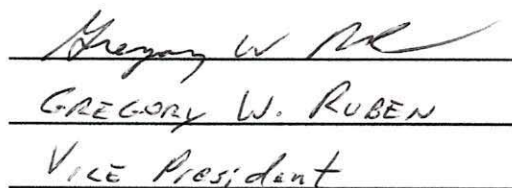 Gregory W
GREGORY W. RUBEN
Vice President